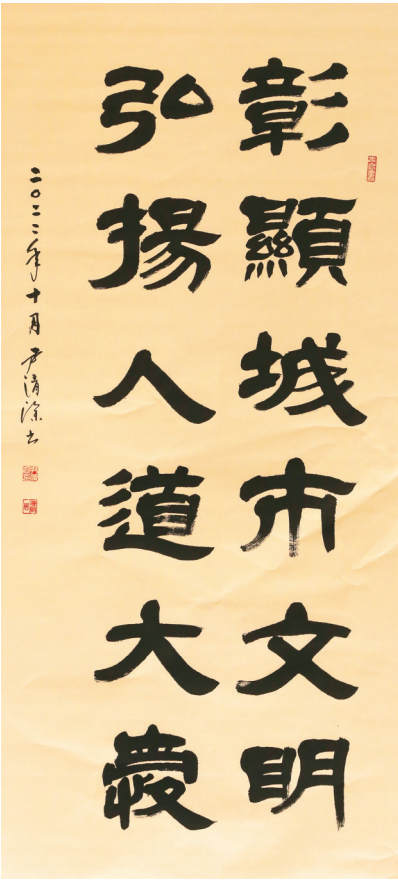 彰顯城市文明
弘揚人道大愛
二〇二二年十月尹清深书